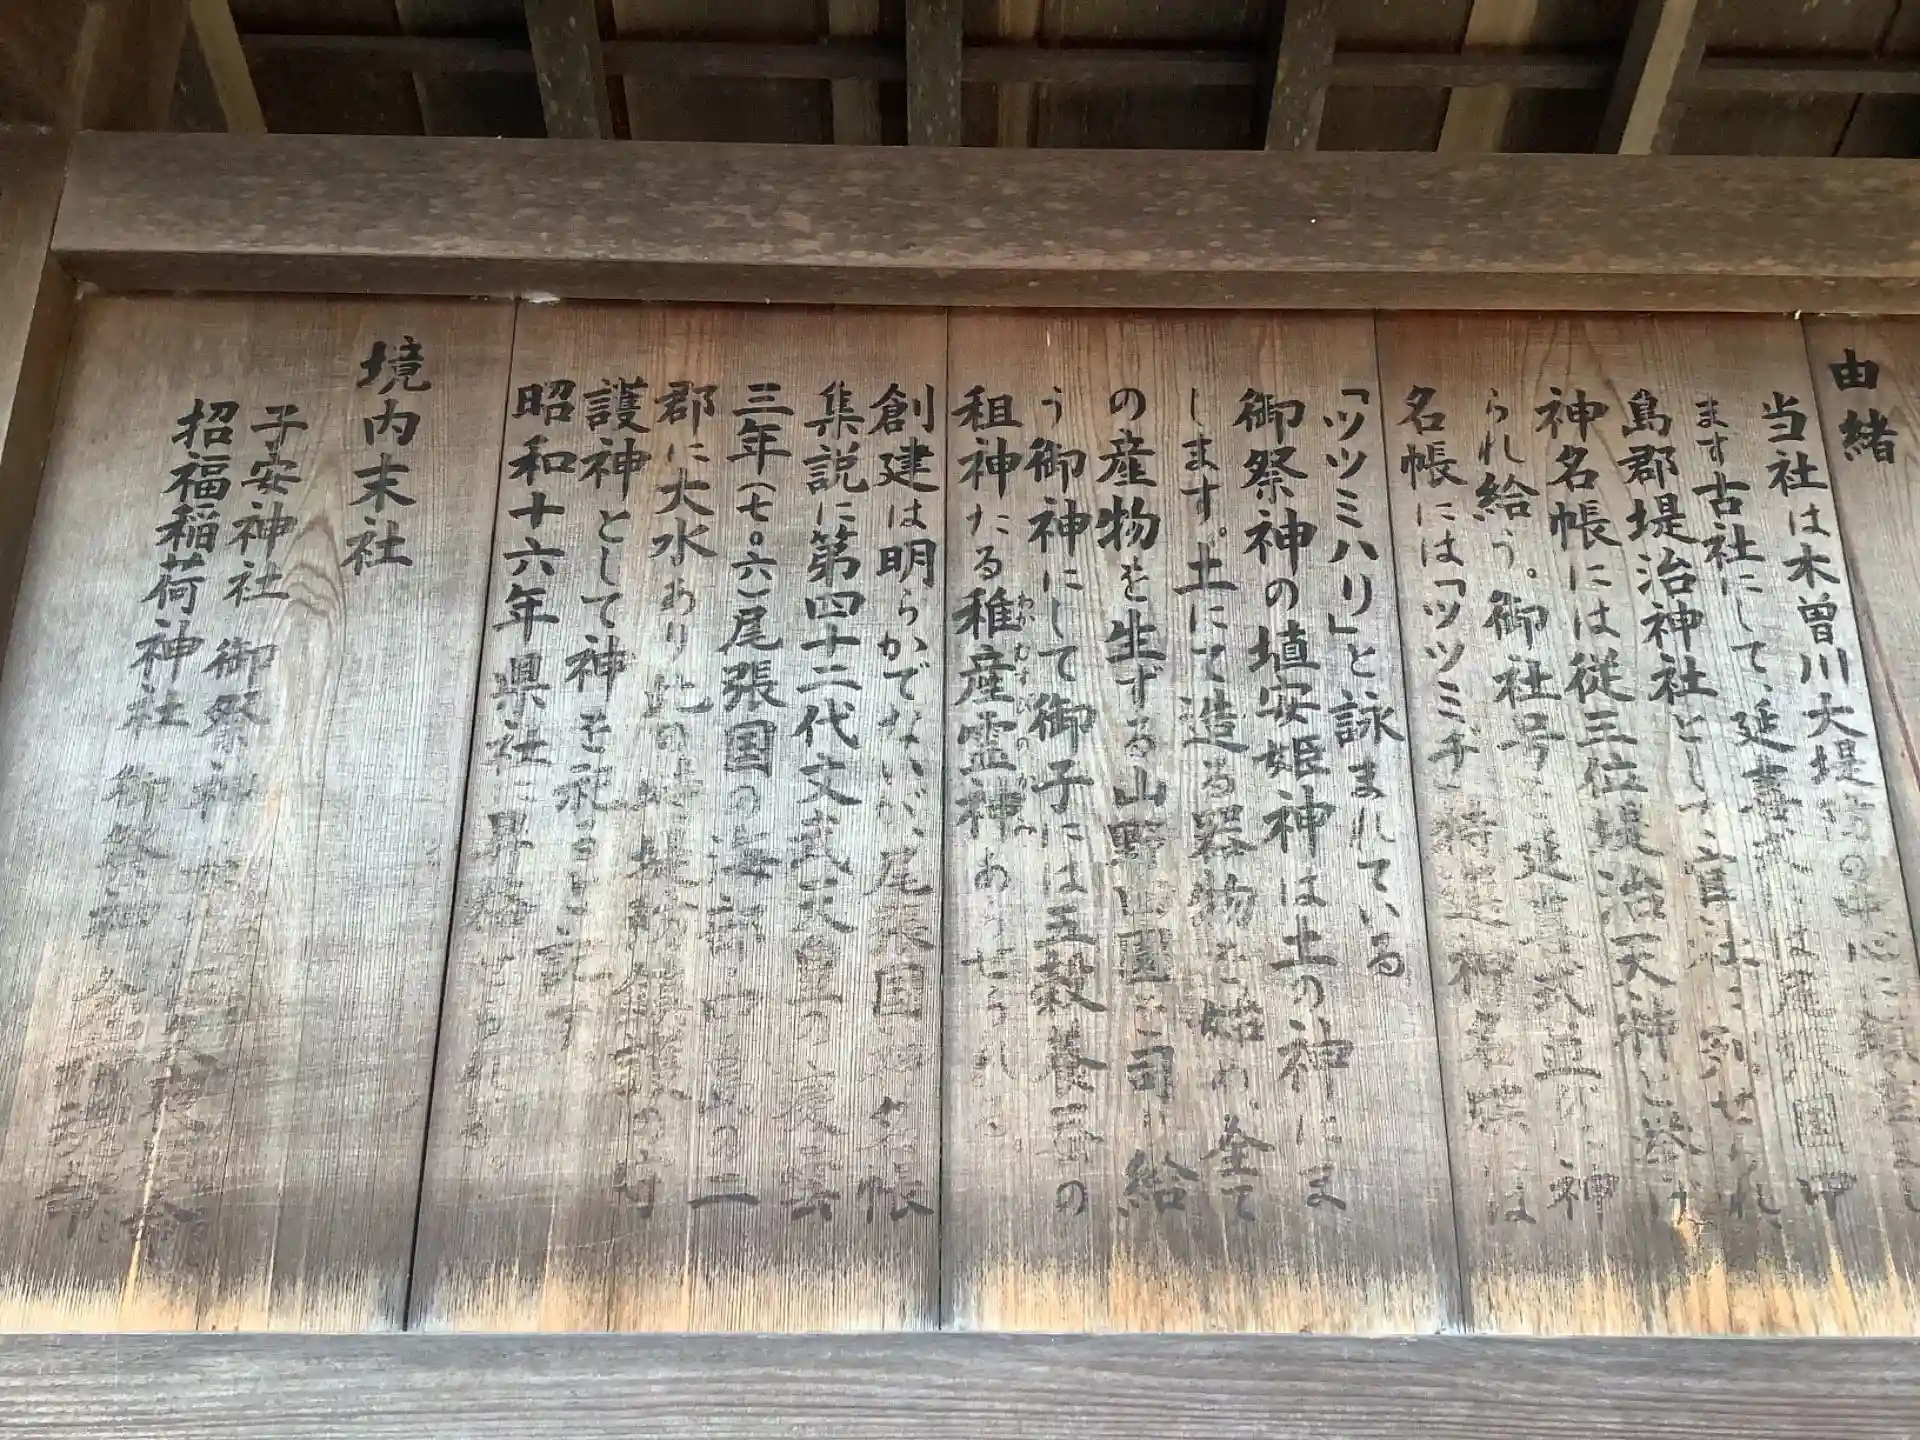 由緒
当社は木曽川大堤防の中心に鎮座まし
ます古社にして、延喜式には尾張国中
島郡堤治神社として官社に列せられ、
神名帳には従三位堤治天神と挙げ
られ給う。御社号は延喜式並に神
名帳には「ツツミヂ」特選神名牒には
「ツツミハリ」と詠まれている。
御祭神の埴安姫神は土の神にま
します。土にて造る器物を始め、全て
の産物を生ずる山野田園を司り給
う御神にして御子には五穀養蚕の
祖神たる稚産霊神あらせられる。
わかむすびのかみ
創建は明らかでないが、尾張国神名帳
集説に第四十二代文武天皇の慶雲
三年(七〇六)尾張国の海部中島の二
郡に大水あり此の時堤防鎮護の守
護神として神を祀ると記す。
昭和十六年県社に昇格せられる。
境内末社
子安神社 御祭神
招福稲荷神社 御祭神